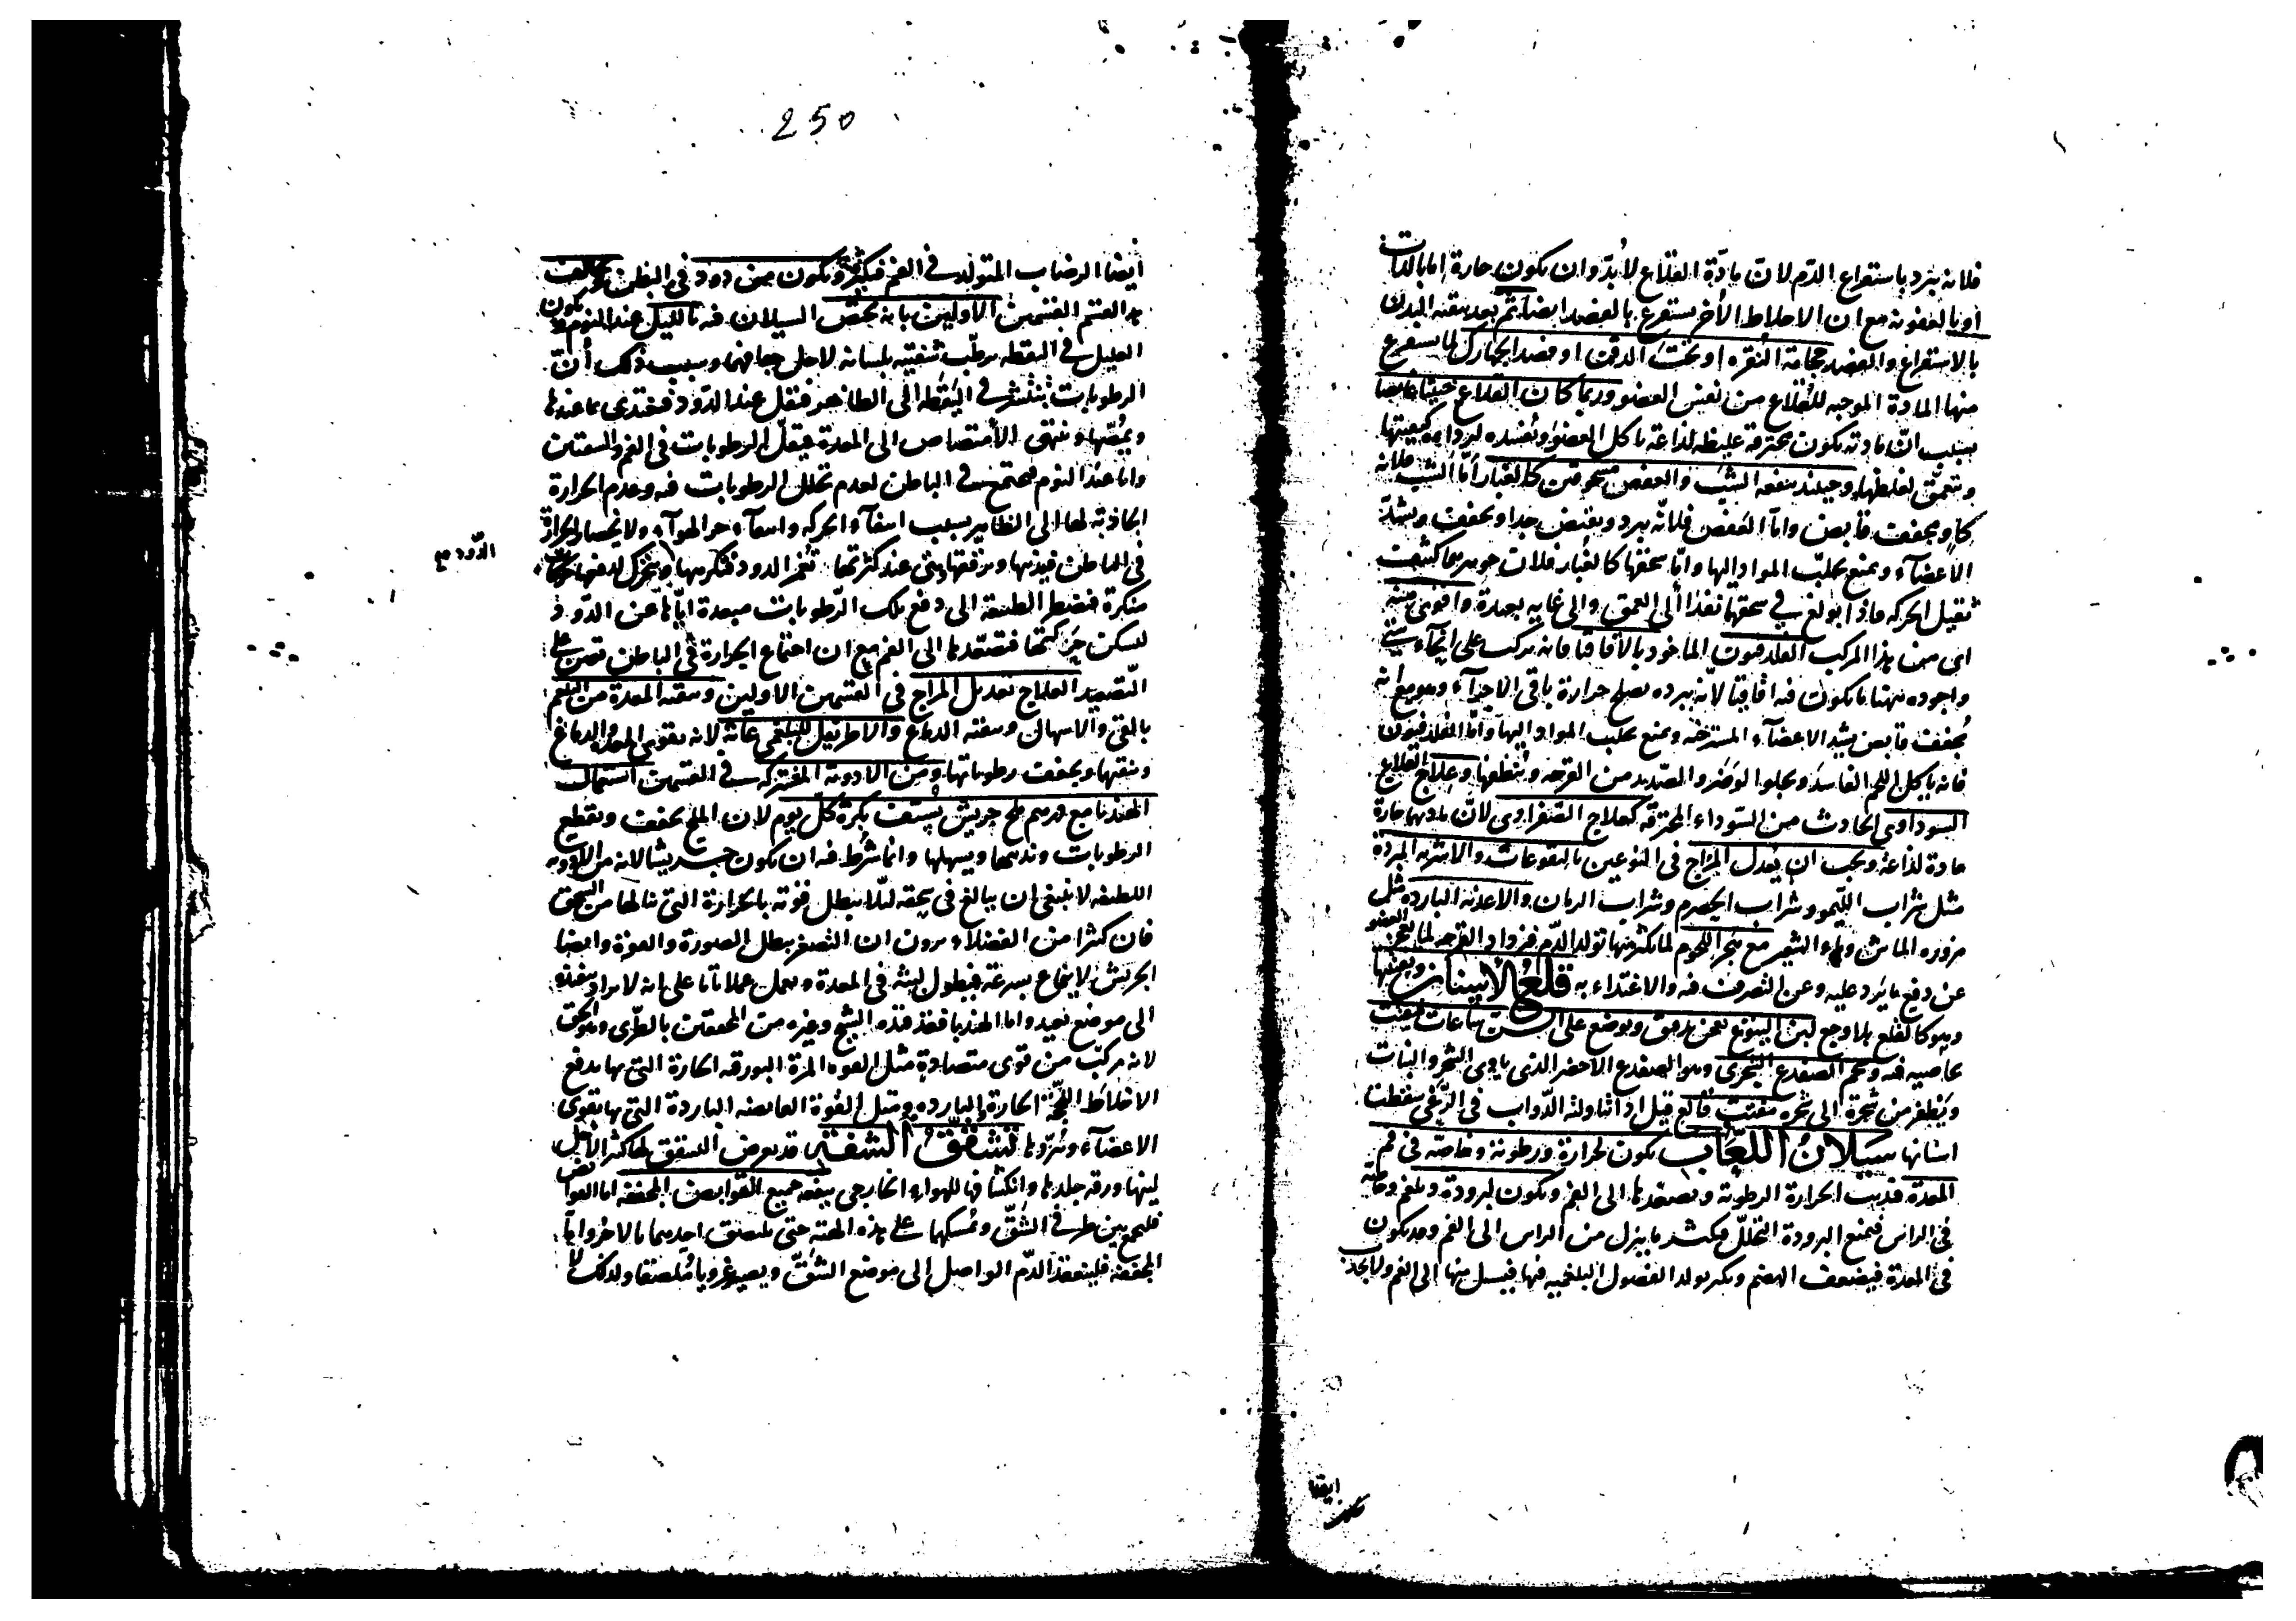 فلانه يبرد باستفراغ الدم لان مادة القلاع لا بد وان يكون حارة اما بالذات
او بالعفونة مع ان الاخلاط الأخر يستفرغ بالفصد ايضا ثم بعد تنقية البدن
بالاستفراغ والفصد حجامة النقرة او تحت الذقن او فصد الجهارك لما يستفرغ
منها المادة الموجبه للقلاع من نفس العضو وربما كان القلاع خبيثا
بسبب ان مادته يكون محترقة غليظة لذاعة ياكل العضو ويفسده لرداءة كيفيتها
ويتعمق لغلظها وحينئذ ينفعه الشب والعفص مسحوقين كالغبار اما الشب فلانه
كاو مجفف قابض واما العفص فلانه يبرد ويقبض جدا ويجفف ويشد
الاعضاء ويمنع تحلب المواد اليها واما سحقها كالغبار فلان جوهرهما كثيف
ثقيل الحركه فاذا بولغ في سحقها نفذا الى العمق والى غايه بعيدة واقوى منه
اى من هذا المركب الفلدفيون الماخوذ بالاقاقيا فانه يركب على انحاء شتى
واجوده ههنا ما يكون فيه اقاقيا لانه ببرده يصلح حرارة باقى الاجزاء وهو مع انه
يجفف قابض يشد الاعضاء المسترخيه ويمنع تحلب المواد اليها واما الفلدفيون
فانه ياكل اللحم الفاسد ويجلوا الوضر والصديد من القرحه وينظفها وعلاج القلاع
السوداوى الحادث من السوداء المحترقه كعلاج الصفراوى لان مادتهما حارة
حادة لذاعة ويجب ان يعدل المزاج فى النوعين بالنقوعات والاشربه المبردة
مثل شراب الليمو وشراب الحصرم وشراب الرمان والاغذيه البارده مثل
مزوره الماش وماء الشعير مع هجر اللحوم لما يكثر منها تولد الدم فيزداد القرحه لما يعجز العضو
عن دفع ما يرد عليه وعن التصرف فيه والاغتذاء به قلع الاسنان
وهو كالقلع بلا وجع لبن اليتوع يعجن بدقيق ويوضع على السن ساعات يفتت
بخاصيه فيه وشحم الضفدع الشجرى وهو الضفدع الاخضر الذى ياوى الشجر والنبات
ويطفر من شجرة الى شجره مفتت قالع قيل اذا تناولته الدواب فى الرعى سقطت
اسنانها سيلان اللعاب يكون لحرارة ورطوبة وخاصة فى فم
المعدة فيذيب الحرارة الرطوبة ويصعدها الى الفم ويكون لبرودة وبلغم وخاصة
فى الراس فيمنع البرودة التحلل فيكثر ما ينزل من الراس الى الفم وقد يكون
فى المعدة فيضعف الهضم ويكثر تولد الفضول البلغميه فيها فيسيل منها الى الفم
ايضا
250
ايضا الرضاب المتولد فى الفم فيكثر ويكون من دود فى البطن يخالف
هذا القسم القسمين الاولين بانه يخص السيلان فيه بالليل عند النوم ويكون
العليل فى اليقظه يرطب شفتيه بلسانه لاجل جفافهما وسبب ذلك أن
الرطوبات ينتشر فى اليقظه الى الظاهر فيقل عند الدود فيغتذى بما عندها
ويمصها وينتهى الأمتصاص الى المعدة فيقل الرطوبات فى الفم والشفتين
واما عند النوم فيجتمع فى الباطن لعدم تحلل الرطوبات فيه وعدم الحرارة
الجاذبة لها الى الظاهر بسبب انتفاء الحركه وانتفاء حر الهواء ولانحصار الحرارة
فى الباطن فيذيبها ويرققها حتى عند كثرتها تغمر الدود فيكرهها ويتحرك لدفعها حركات
الدود
منكرة فيضطر الطبيعة الى دفع تلك الرطوبات مبعدة اياها عن الدود
ليسكن حركتها فتصعدها الى الفم مع ان اجتماع الحرارة فى الباطن تعين على
التصعيد العلاج تعديل المزاج فى القسمين الاولين وتنقية المعدة من البلغم
بالقى والاسهال وتنقية الدماغ والاطريفل للبلغمى غاية لانه يقوى المعدة والدماغ
وينقيها ويجفف رطوباتها ومن الادوية المشتركه فى القسمين استعمال
الهندبا مع درهم ملح جريش يستف بكرة كل يوم لان الملح يجفف ويقطع
الرطوبات ويذيبها ويسهلها وانما شرط فيه ان يكون جريشا لانه من الادويه
اللطيفه لا ينبغى ان يبالغ فى سحقه لئلا يبطل قوته بالحرارة التى تنالها من السحق
فان كثيرا من الفضلاء يرون ان التصغير يبطل الصورة والقوة وايضا
الجريش لا ينماع بسرعة فيطول لبثه فى المعدة ويعمل عملا تاما على انه لا يراد نفوذه
الى موضع بعيد واما الهندبا فقد قيده الشيخ وغيره من المحققين بالطرى وهو الحق
لانه مركب من قوى متضادة مثل القوه المرة البورقيه الحارة التى بها يدفع
الاخلاط الفجة الحارة والبارده ومثل القوة القابضه الباردة التى بها يقوى
الاعضاء ويبردها تشقق الشفتين قد يعرض التشقق لهما كثيرا لاجل
لينها ورقه جلدها وانكشافها للهواء الخارجى ينفعه جميع القوابض المجففه اما القوابض
فليجمع بين طرفى الشق ويمسكها على هذه الهيئة حتى يلتصق احدهما بالاخر واما
المجففه فلينعقد الدم الواصل الى موضع الشق ويصير غرويا ملصقا ولذلك لا